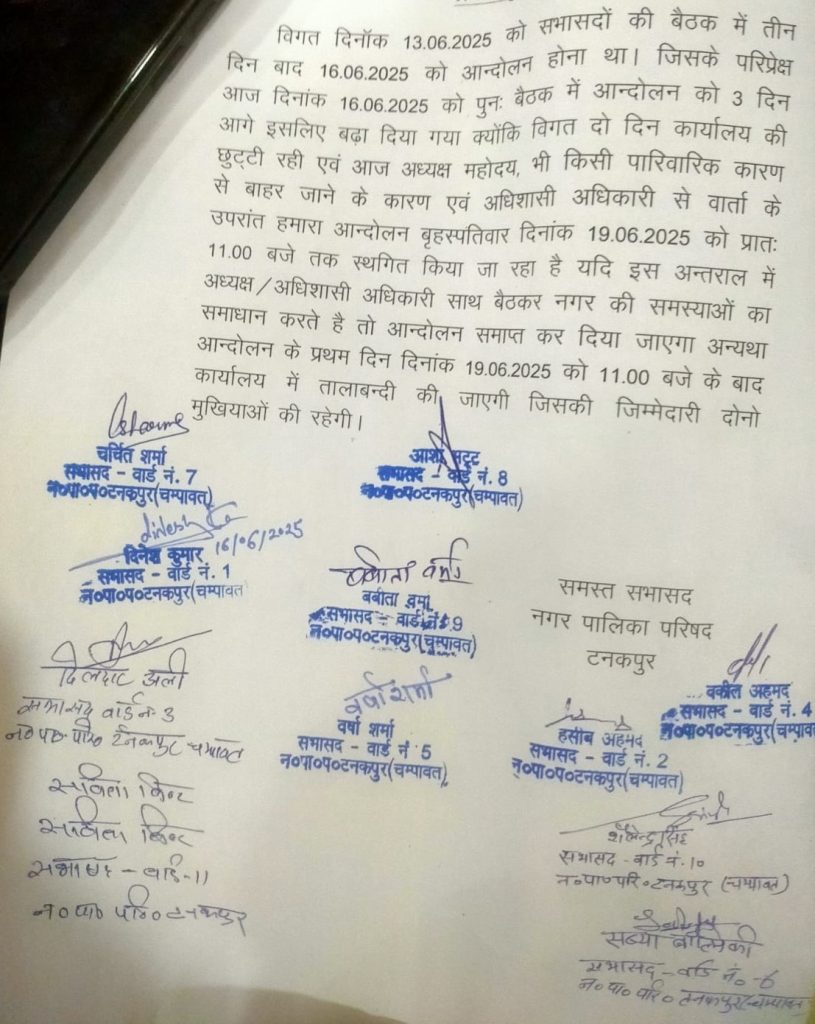 विगत दिनॉक 13.06.2025 को सभासदों की बैठक में तीन
दिन बाद 16.06.2025 को आन्दोलन होना था। जिसके परिप्रेक्ष
आज दिनांक 16.06.2025 को पुनः बैठक में आन्दोलन को 3 दिन
आगे इसलिए बढ़ा दिया गया क्योंकि विगत दो दिन कार्यालय की
छुट्टी रही एवं आज अध्यक्ष महोदय, भी किसी पारिवारिक कारण
से बाहर जाने के कारण एवं अधिशासी अधिकारी से वार्ता के
उपरांत हमारा आन्दोलन बृहस्पतिवार दिनांक 19.06.2025 को प्रातः
11.00 बजे तक स्थगित किया जा रहा है यदि इस अन्तराल में
अध्यक्ष/अधिशासी अधिकारी साथ बैठकर नगर की समस्याओं का
समाधान करते है तो आन्दोलन समाप्त कर दिया जाएगा अन्यथा
आन्दोलन के प्रथम दिन दिनांक 19.06.2025 को 11.00 बजे के बाद
कार्यालय में तालाबन्दी की जाएगी जिसकी जिम्मेदारी दोनो
मुखियाओं की रहेगी।
चर्चित शर्मा
सभासद - वार्ड नं. 7
न०पा०प०टनकपुर(चम्पावत)
सभासद - वार्ड नं. 8
न०पा०प०टनकपुर(चम्पावत)
16/06/2025
दिनेश कुमार
सभासद - वार्ड नं. 1
न०पा०प०टनकपुर(चम्पावत
बबीता वर्मा
बबीता वर्मा
सभासद - वार्ड नं 9
न०पा०प०टनकपुर(चम्पावत)
समस्त सभासद
नगर पालिका परिषद
टनकपुर
दिलदार अली
सभासद वार्ड नं 3
न० पा० परि० टनकपुर चम्पावत
वर्षा शर्मा
वर्षा शर्मा
सभासद - वार्ड नं 5
न०पा०प०टनकपुर(चम्पावत)
वकील अहमद
सभासद - वार्ड नं. 4
न०पा०प०टनकपुर(चम्पावत
हसीब अहमद
सभासद - वार्ड नं. 2
न०पा०प०टनकपुर(चम्पावत)
सभासद - वार्ड - 11
न० पा० परि० टनकपुर
शैलेन्द्र सिंह
सभासद - वार्ड नं. 10
न० पा० परि० टनकपुर (चम्पावत)
वाल्मिकी
सभासद - वार्ड नं० - 6
न० पा० परि० टनकपुर चम्पावत